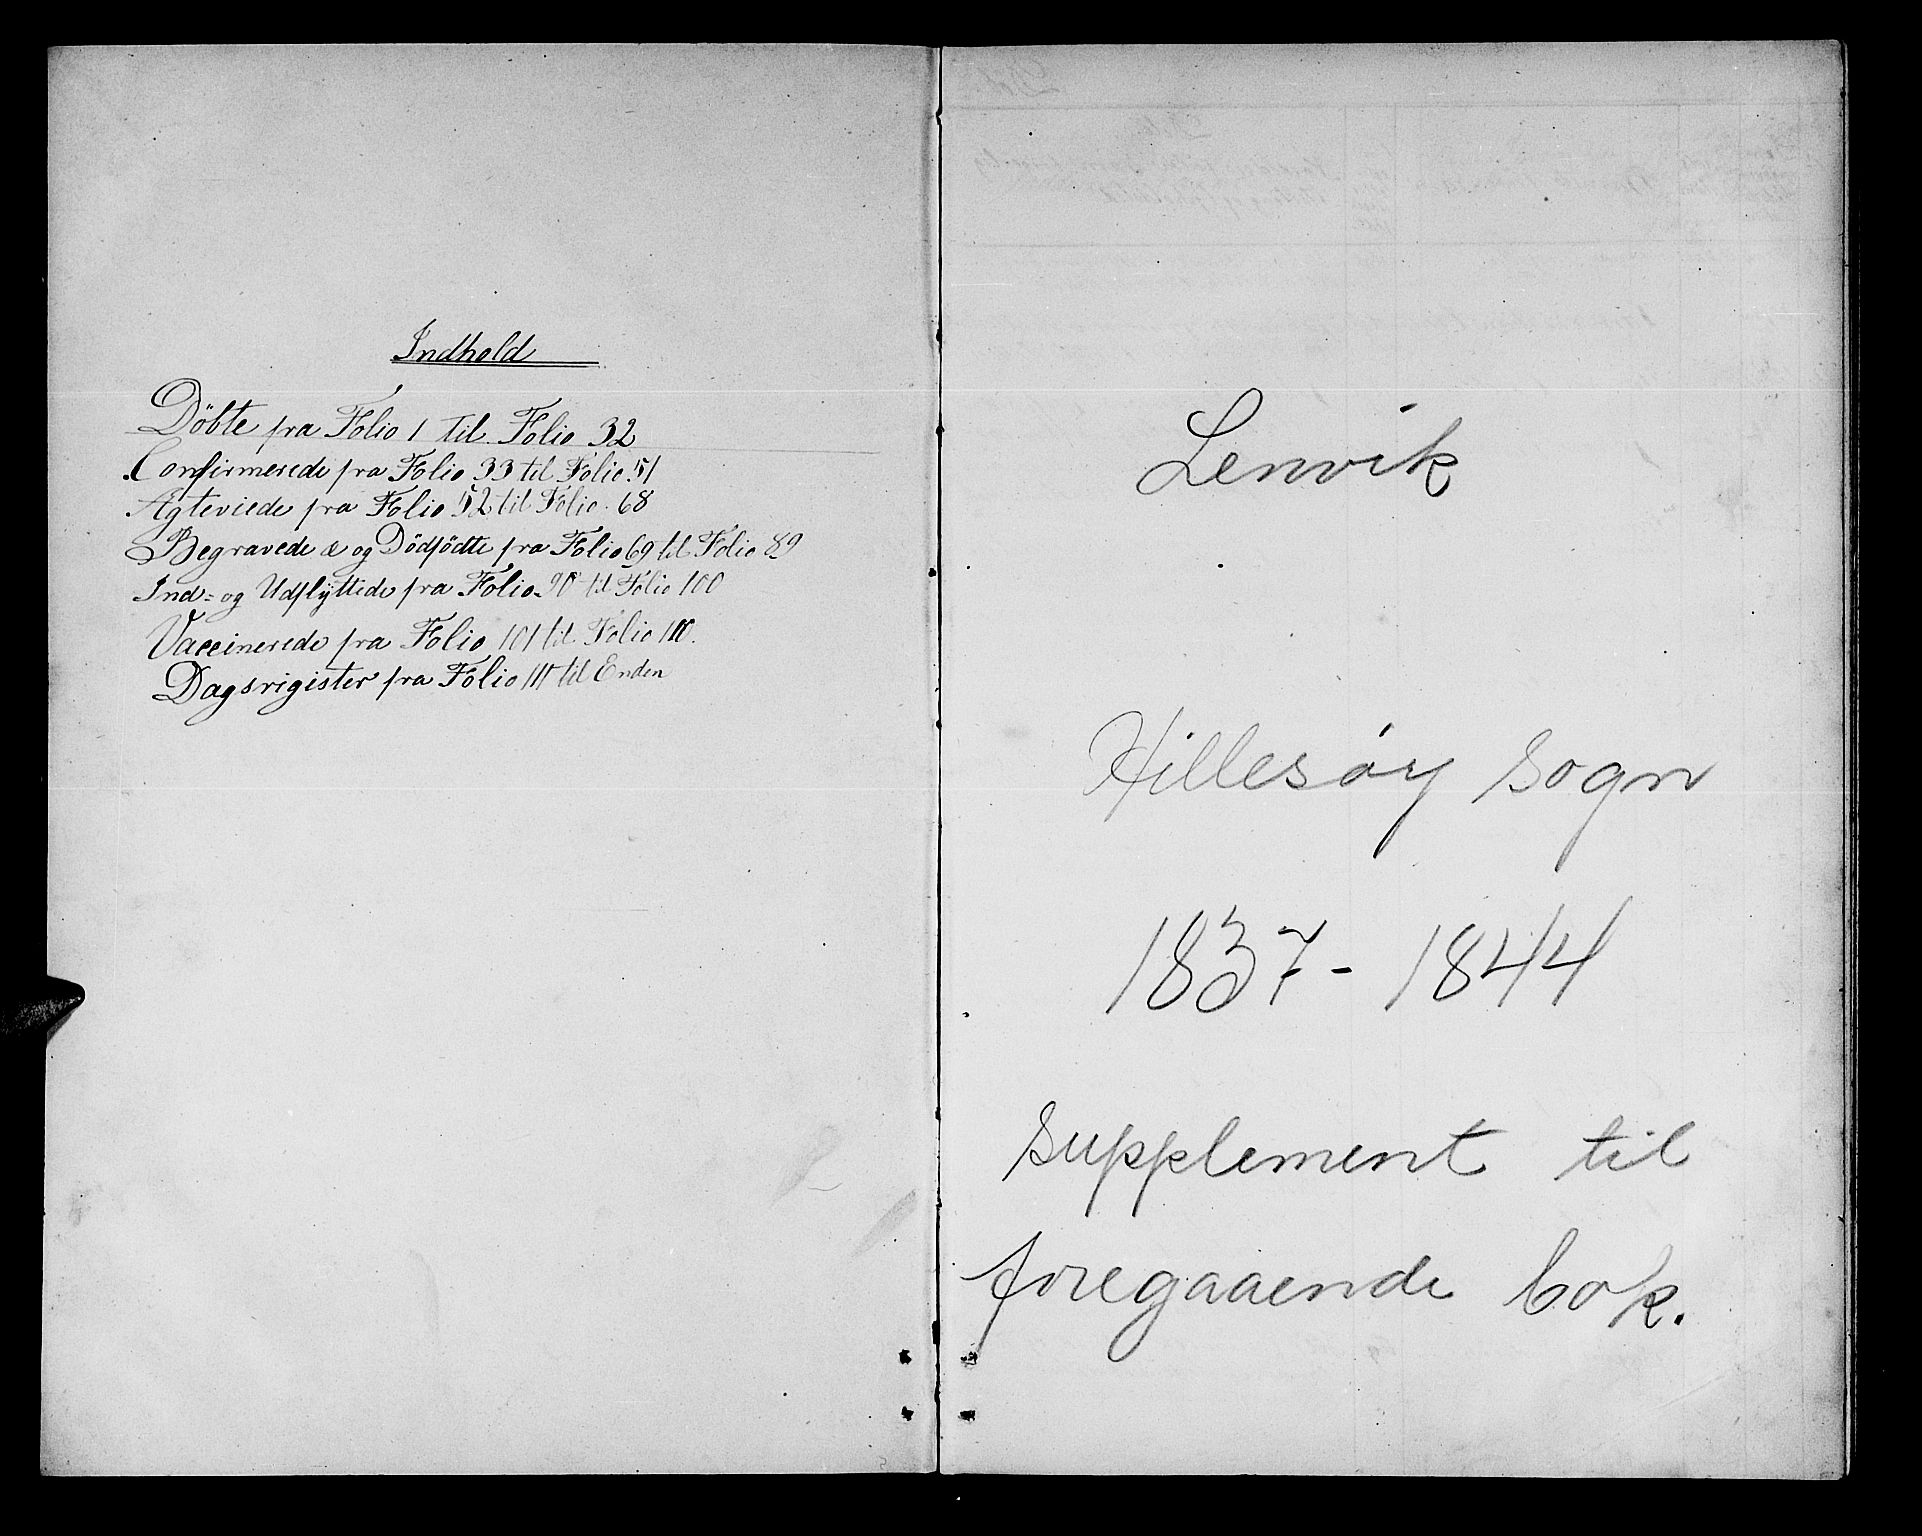 Indhold
Döbte fra Folio 1 til Folio 32
Confirmerede fra Folio 33 til Folio 51
Ægteviede fra Folio 52 til Folio 68
Begravede og Dödfödte fra Folio 69 til Folio 89
Ind= og Udflÿttede fra Folio 90 til Folio 100
Vaccinerede fra Folio 101 til Folio 110.
Dagsrigister fra Folio 111 til Enden
Lenvik
Hillesøy sogn
1837 - 1844
supplement til
foregaaende bok.